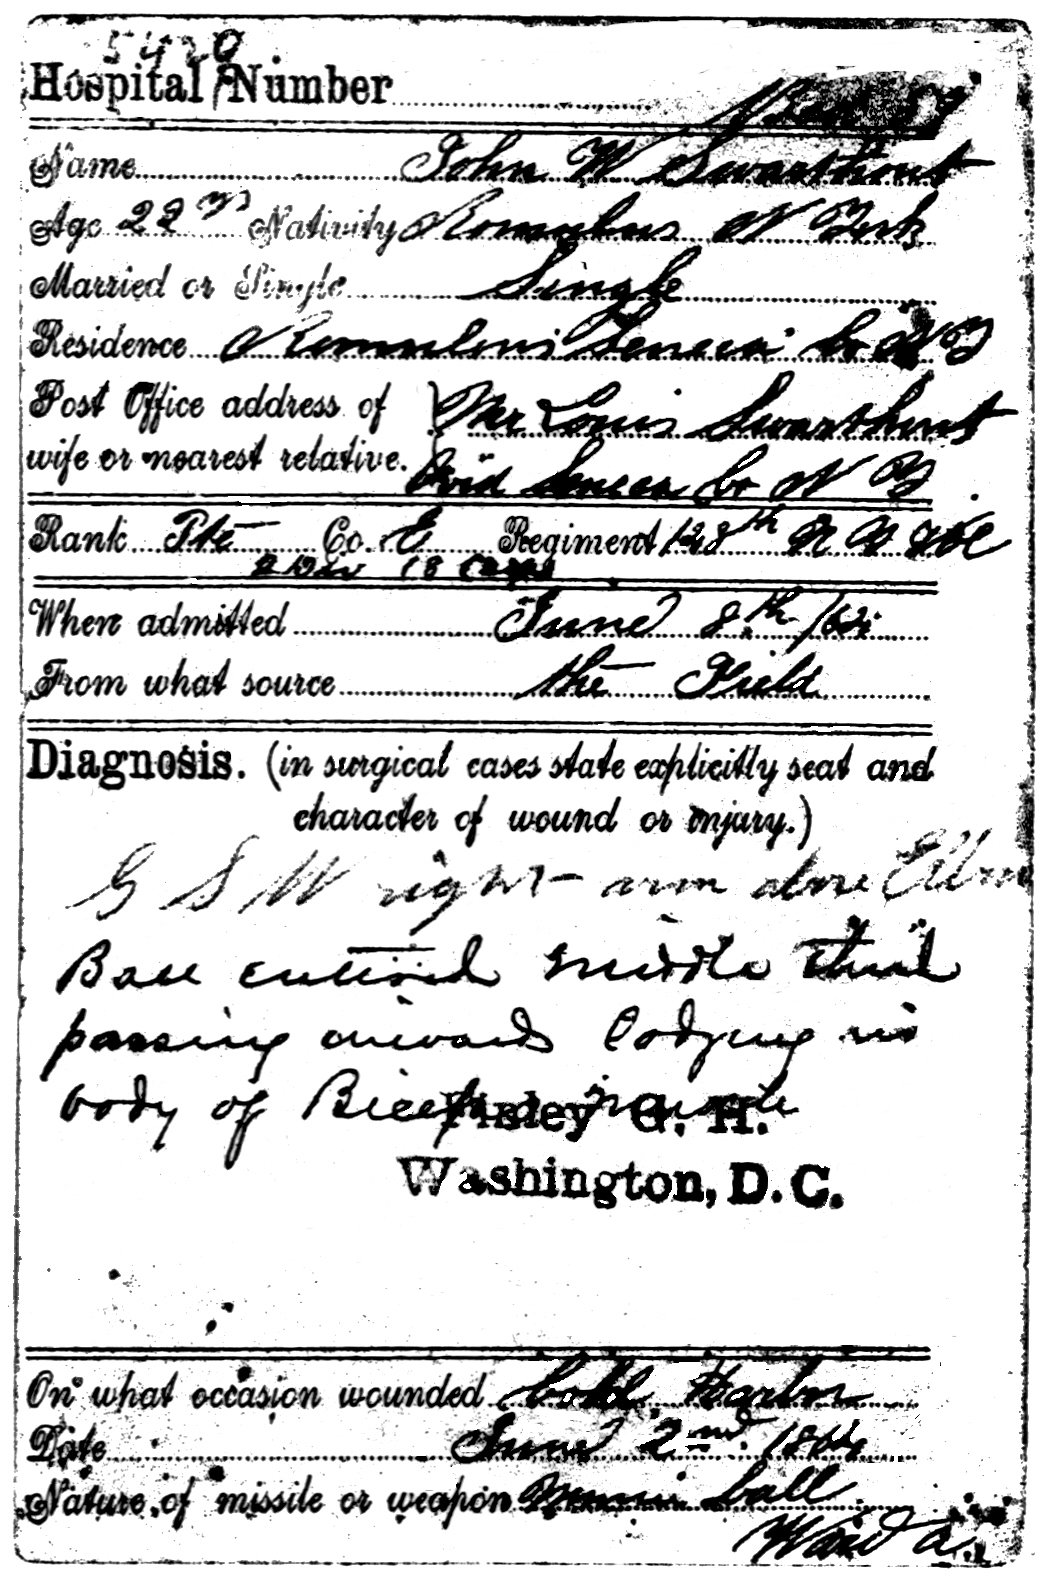 5420
Hospital Number
Bed 59
Name John W Swarthout
Age 22 yrs Nativity Romulus N York
Married or Single Single
Residence Romulus Seneca Co N Y
Post Office address of wife or nearest relative. Mr Louis Swarthout
Ovid Seneca Co N Y.
Rank Pte Co. E Regiment 148th N Y Vol
2 Div 18 Corps
When admitted June 8th /64
From what source the Field
Diagnosis. (in surgical cases state explicitly seat and
character of wound or injury.)
G S W right arm above Elbow
Ball entered middle third
passing inwards lodging in
body of Biceps muscle
G. H.
Washington, D.C.
On what occasion wounded Cold Harbor
Date June 2nd 1864
Nature of missile or weapon Minnie ball
Ward A.